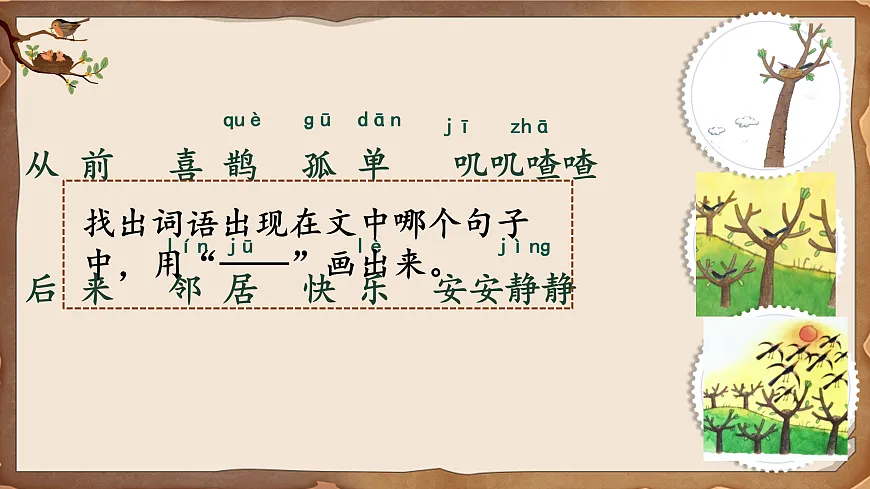 què gū dān jī zhā
从前 喜鹊 孤单 叽叽喳喳
找出词语出现在文中哪个句子
中，用“——”画出来。
lín jū lè jìng
后来 邻居 快乐 安安静静